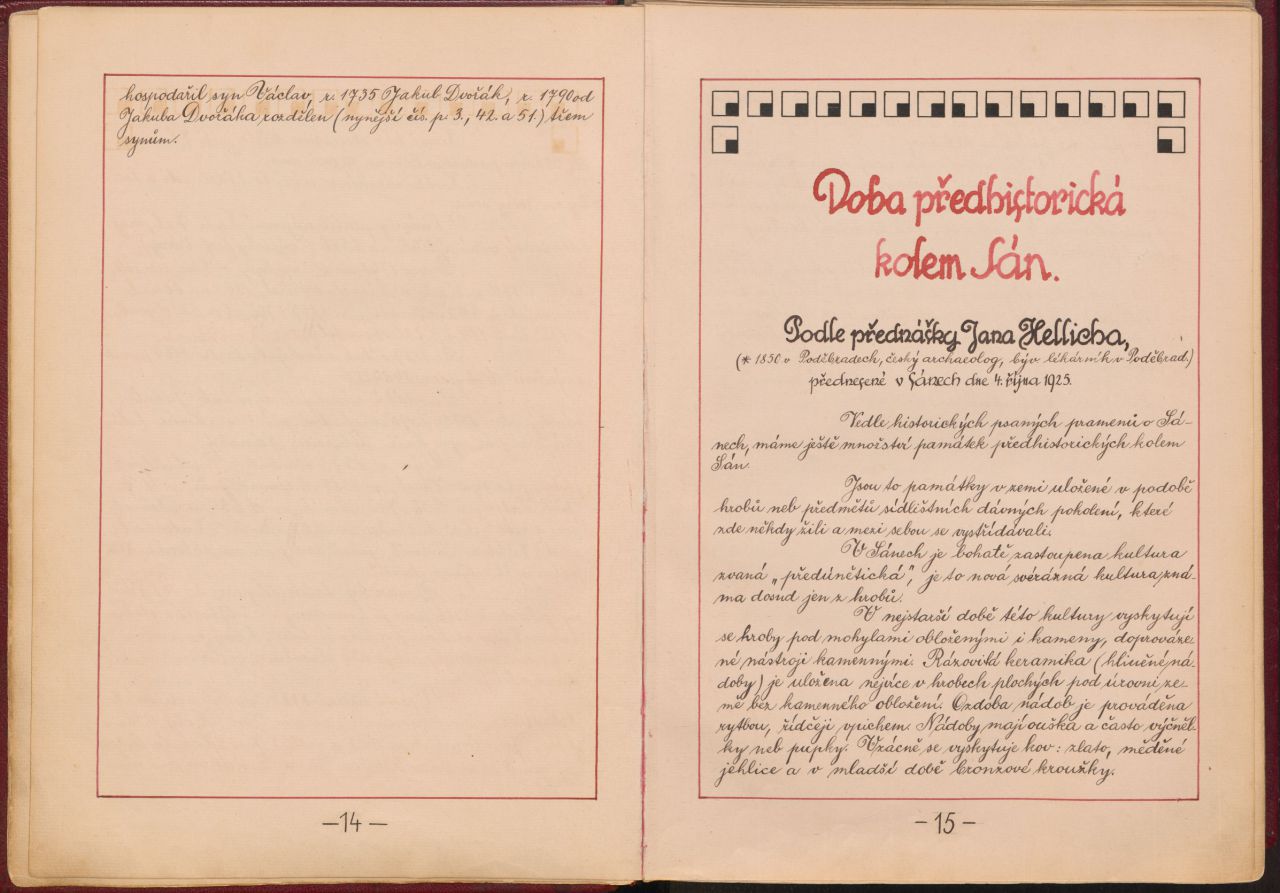 hospodařil syn Václav, r. 1735 Jakub Dvořák, r. 1790 od
Jakuba Dvořáka rozdělen (nynější čís. p. 3., 42. a 51.) třem
synům.
—14—
Doba předhistorická
kolem Sán.
Podle přednášky Jana Hellicha,
(* 1850 v Poděbradech, český archaeolog, býv. lékárník v Poděbrad.)
přednesené v Sánech dne 4. října 1925.
Vedle historických psaných pramenů o Sá-
nech, máme ještě množství památek předhistorických kolem
Sán.
Jsou to památky v zemi uložené v podobě
hrobů neb předmětů sídlištních dávných pokolení, které
zde někdy žili a mezi sebou se vystřídávali.
V Sánech je bohatě zastoupena kultura
zvaná „předúnětická“, je to nová svérázná kultura, zná-
ma dosud jen z hrobů.
V nejstarší době této kultury vyskytují
se hroby pod mohylami obloženými i kameny, doprováze-
né nástroji kamennými. Rázovitá keramika (hliněné ná-
doby) je uložena nejvíce v hrobech plochých pod úrovní ze-
mě bez kamenného obložení. Ozdoba nádob je prováděna
rytbou, řídčeji vpichem. Nádoby mají ouška a často výčněl-
ky neb pupky. Vzácně se vyskytuje kov: zlato, měděné
jehlice a v mladší době bronzové kroužky.
—15—